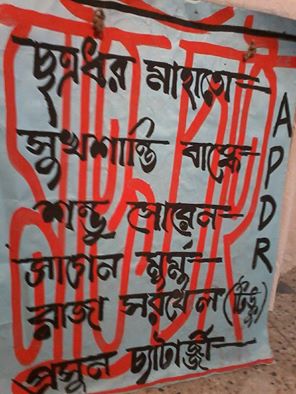 ছত্রধর মাহাতো—
সুখশান্তি বাস্কে—
শম্ভু সোরেন—
সাগেন মুর্মু—
রাজা সরখেল (টিঙ্কু)
প্রসুন চ্যাটার্জ্জী—
APDR